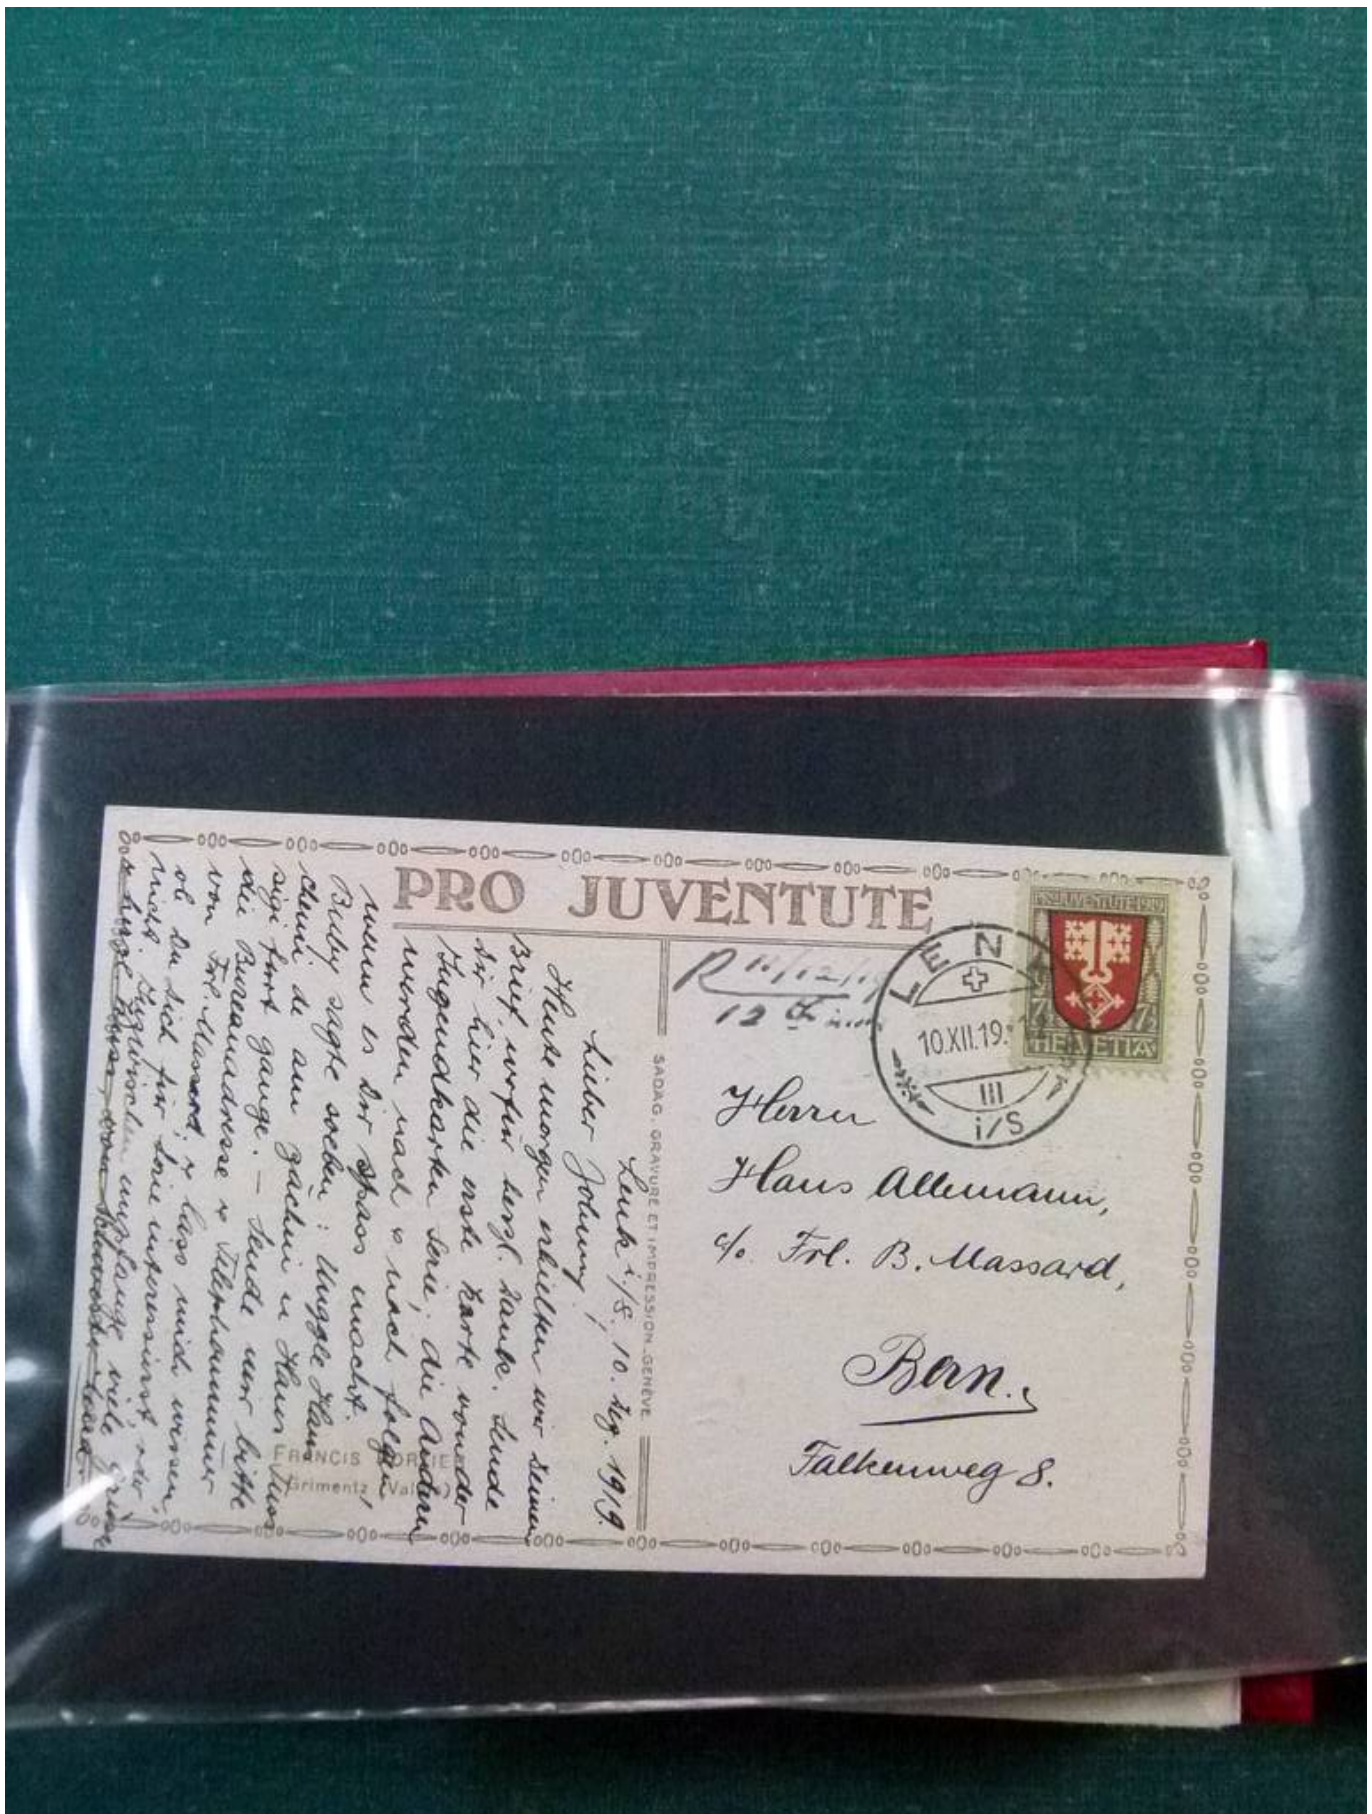 PRO JUVENTUTE
PRO JUVENTUTE 1919
7½ 7½
HELVETIA
LENK
10.XII.19.
III
i/S
R
12
Herrn
Hans Allemann,
c/o. Frl. B. Massard,
Bern.
Falkenweg 8.
SADAG, GRAVURE ET IMPRESSION, GENÈVE
Lenk i/S. 10. Dez. 1919.
Lieber Johnny!
Heute morgen erhielten wir Deinen
Brief, wofür herzl. Danke. Sende
Dir hier die erste Karte von der
Jugendkarten Serie; die Andern
werden nach & nach folgen,
wenn es Dir Spass macht.
Buby sagte soeben: Unggle Hans
chunnt de am zächni u Hans muss
sigi furt gange. — Sende mir bitte
die Bureauadresse & Telephonnummer
von Frl. Massard; & lass mich wissen,
ob Du Dich für Serie interessierst, oder
nicht. Inzwischen empfange viele Grüsse
FRANCIS
Grimentz